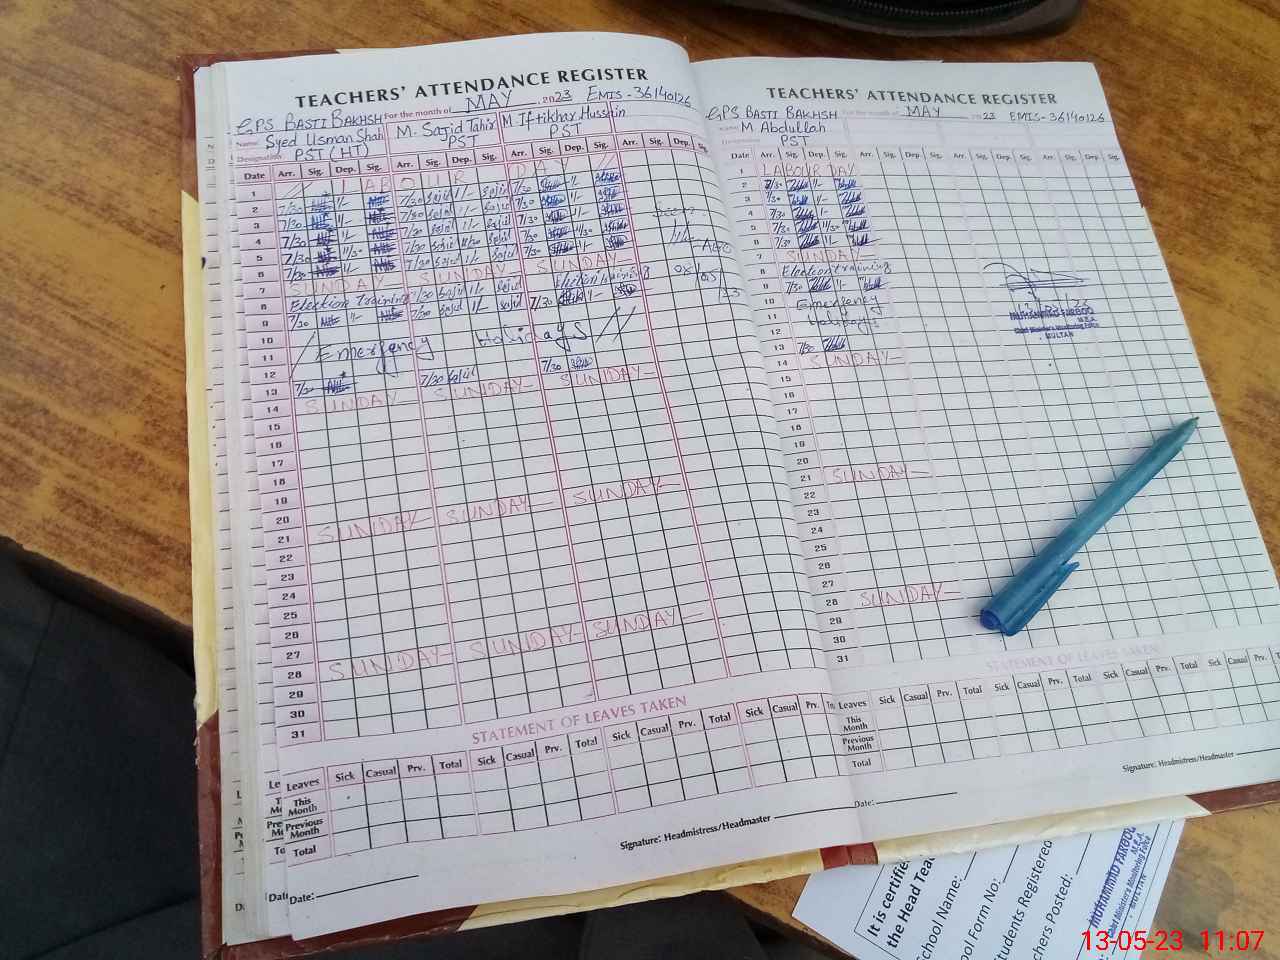 TEACHERS' ATTENDANCE REGISTER
GPS BASTI BAKHSH For the month of MAY 2023 EMIS-36140126
Name: Syed Usman Shah M. Sajid Tahir M Iftikhar Hussain
Designation: PST (HT) PST PST
Date Arr. Sig. Dep. Sig. Arr. Sig. Dep. Sig. Arr. Sig. Dep. Sig. Arr. Sig. Dep. Sig.
1 // LABOUR DAY //
2 7/30 1/- 7/30 Sajid 1/- Sajid 7/30 1/-
3 7/30 1/- 7/30 Sajid 1/- Sajid 7/30 1/-
4 7/30 1/- 7/30 Sajid 1/- Sajid 7/30 1/-
5 7/30 11/30 7/30 Sajid 11/30 Sajid 7/30 11/30
6 7/30 1/- 7/30 Sajid 1/- Sajid 7/30 1/-
7 SUNDAY SUNDAY SUNDAY
8 Election training 7/30 Sajid 1/- Sajid Election training
9 7/30 1/- 7/30 Sajid 1/- Sajid 7/30 1/-
10
11 Emergency Holidays //
12
13 7/30 7/30 Sajid 7/30
14 SUNDAY SUNDAY SUNDAY
15
16
17
18
19
20
21 SUNDAY SUNDAY SUNDAY
22
23
24
25
26
27
28 SUNDAY SUNDAY SUNDAY
29
30
31
AEO
STATEMENT OF LEAVES TAKEN
Leaves Sick Casual Prv. Total Sick Casual Prv. Total Sick Casual Prv. Total Sick Casual Prv.
This Month
Previous Month
Total
Signature: Headmistress/Headmaster
Date:
TEACHERS' ATTENDANCE REGISTER
GPS BASTI BAKHSH For the month of MAY 2023 EMIS-36140126
Name: M Abdullah
Designation: PST
Date Arr. Sig. Dep. Sig. Arr. Sig. Dep. Sig. Arr. Sig. Dep. Sig. Arr. Sig. Dep. Sig.
1 LABOUR DAY
2 7/30 1/-
3 7/30 1/-
4 7/30 1/-
5 7/30 11/30
6 7/30 1/-
7 SUNDAY
8 Election training
9 7/30 1/-
10 Emergency
11 Holidays
12
13 7/30
14 SUNDAY
15
16
17
18
19
20
21 SUNDAY
22
23
24
25
26
27
28 SUNDAY
29
30
31
MUHAMMAD FAROOQ
M.E.A
Chief Minister's Monitoring Force
MULTAN
STATEMENT OF LEAVES TAKEN
Leaves Sick Casual Prv. Total Sick Casual Prv. Total Sick Casual Prv. Total Sick Casual Prv. Total
This Month
Previous Month
Total
Signature: Headmistress/Headmaster
Date:
It is certifie
the Head Teac
School Name:
ool Form No:
tudents Registered
chers Posted:
MUHAMMAD FAROOQ
M.E.A
Chief Minister's Monitoring Force
MULTAN
13-05-23 11:07